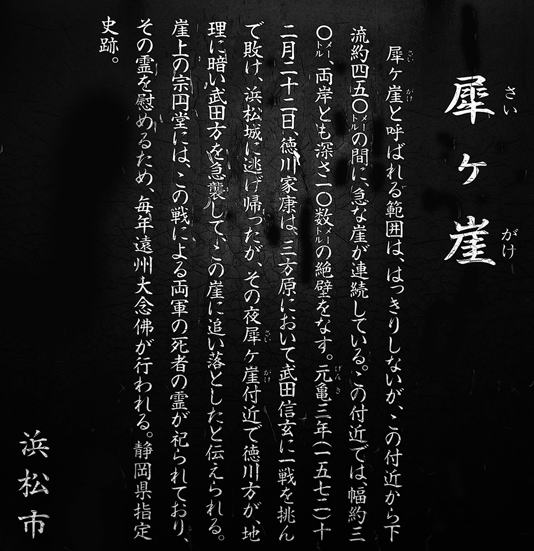 犀ヶ崖
さい がけ
犀ヶ崖と呼ばれる範囲は、はっきりしないが、この付近から下
さい がけ
流約四五〇メートルの間に、急な崖が連続している。この付近では、幅約三
〇メートル、両岸とも深さ一〇数メートルの絶壁をなす。元亀三年(一五七二)十
げんき
二月二十二日、徳川家康は、三方原において武田信玄に一戦を挑ん
で敗け、浜松城に逃げ帰ったが、その夜犀ヶ崖付近で徳川方が、地
さい がけ
理に暗い武田方を急襲して、この崖に追い落としたと伝えられる。
崖上の宗円堂には、この戦による両軍の死者の霊が祀られており、
その霊を慰めるため、毎年遠州大念佛が行われる。静岡県指定
史跡。
浜松市